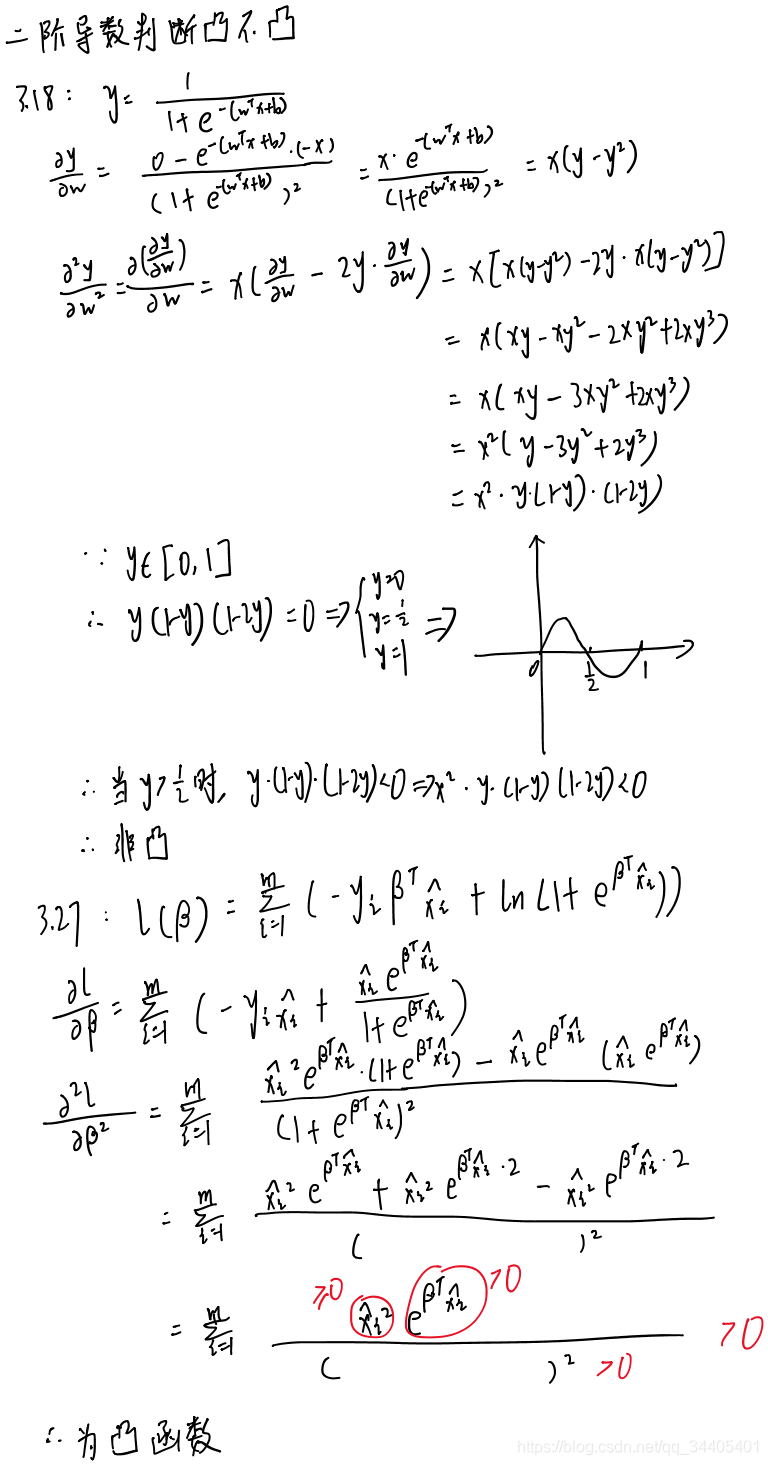 二阶导数判断凸不凸
3.18: y = 1 / (1 + e^{-(w^T x + b)})
∂y/∂w = (0 - e^{-(w^T x + b)} · (-x)) / (1 + e^{-(w^T x + b)})² = (x · e^{-(w^T x + b)}) / (1 + e^{-(w^T x + b)})² = x(y - y²)
∂²y/∂w² = ∂(∂y/∂w)/∂w = x(∂y/∂w - 2y · ∂y/∂w) = x[x(y-y²) - 2y · x(y-y²)]
= x(xy - xy² - 2xy² + 2xy³)
= x(xy - 3xy² + 2xy³)
= x²(y - 3y² + 2y³)
= x² · y·(1-y)·(1-2y)
∵ y∈[0,1]
∴ y(1-y)(1-2y) = 0 => { y=0 y=1/2 y=1 =>
0 1/2 1
∴ 当 y > 1/2 时, y·(1-y)·(1-2y)<0 => x² · y·(1-y)(1-2y)<0
∴ 非凸
3.27: l(β) = Σ_{i=1}^{m} (-y_i β^T x̂_i + ln(1 + e^{β^T x̂_i}))
∂l/∂β = Σ_{i=1}^{m} (-y_i x̂_i + (x̂_i e^{β^T x̂_i}) / (1 + e^{β^T x̂_i}))
∂²l/∂β² = Σ_{i=1}^{m} (x̂_i² e^{β^T x̂_i} · (1 + e^{β^T x̂_i}) - x̂_i e^{β^T x̂_i} (x̂_i e^{β^T x̂_i})) / (1 + e^{β^T x̂_i})²
= Σ_{i=1}^{m} (x̂_i² e^{β^T x̂_i} + x̂_i² e^{β^T x̂_i · 2} - x̂_i² e^{β^T x̂_i · 2}) / ( )²
= Σ_{i=1}^{m} ≥0 x̂_i² e^{β^T x̂_i} >0 / ( )² >0 >0
∴ 为凸函数
https://blog.csdn.net/qq_34405401